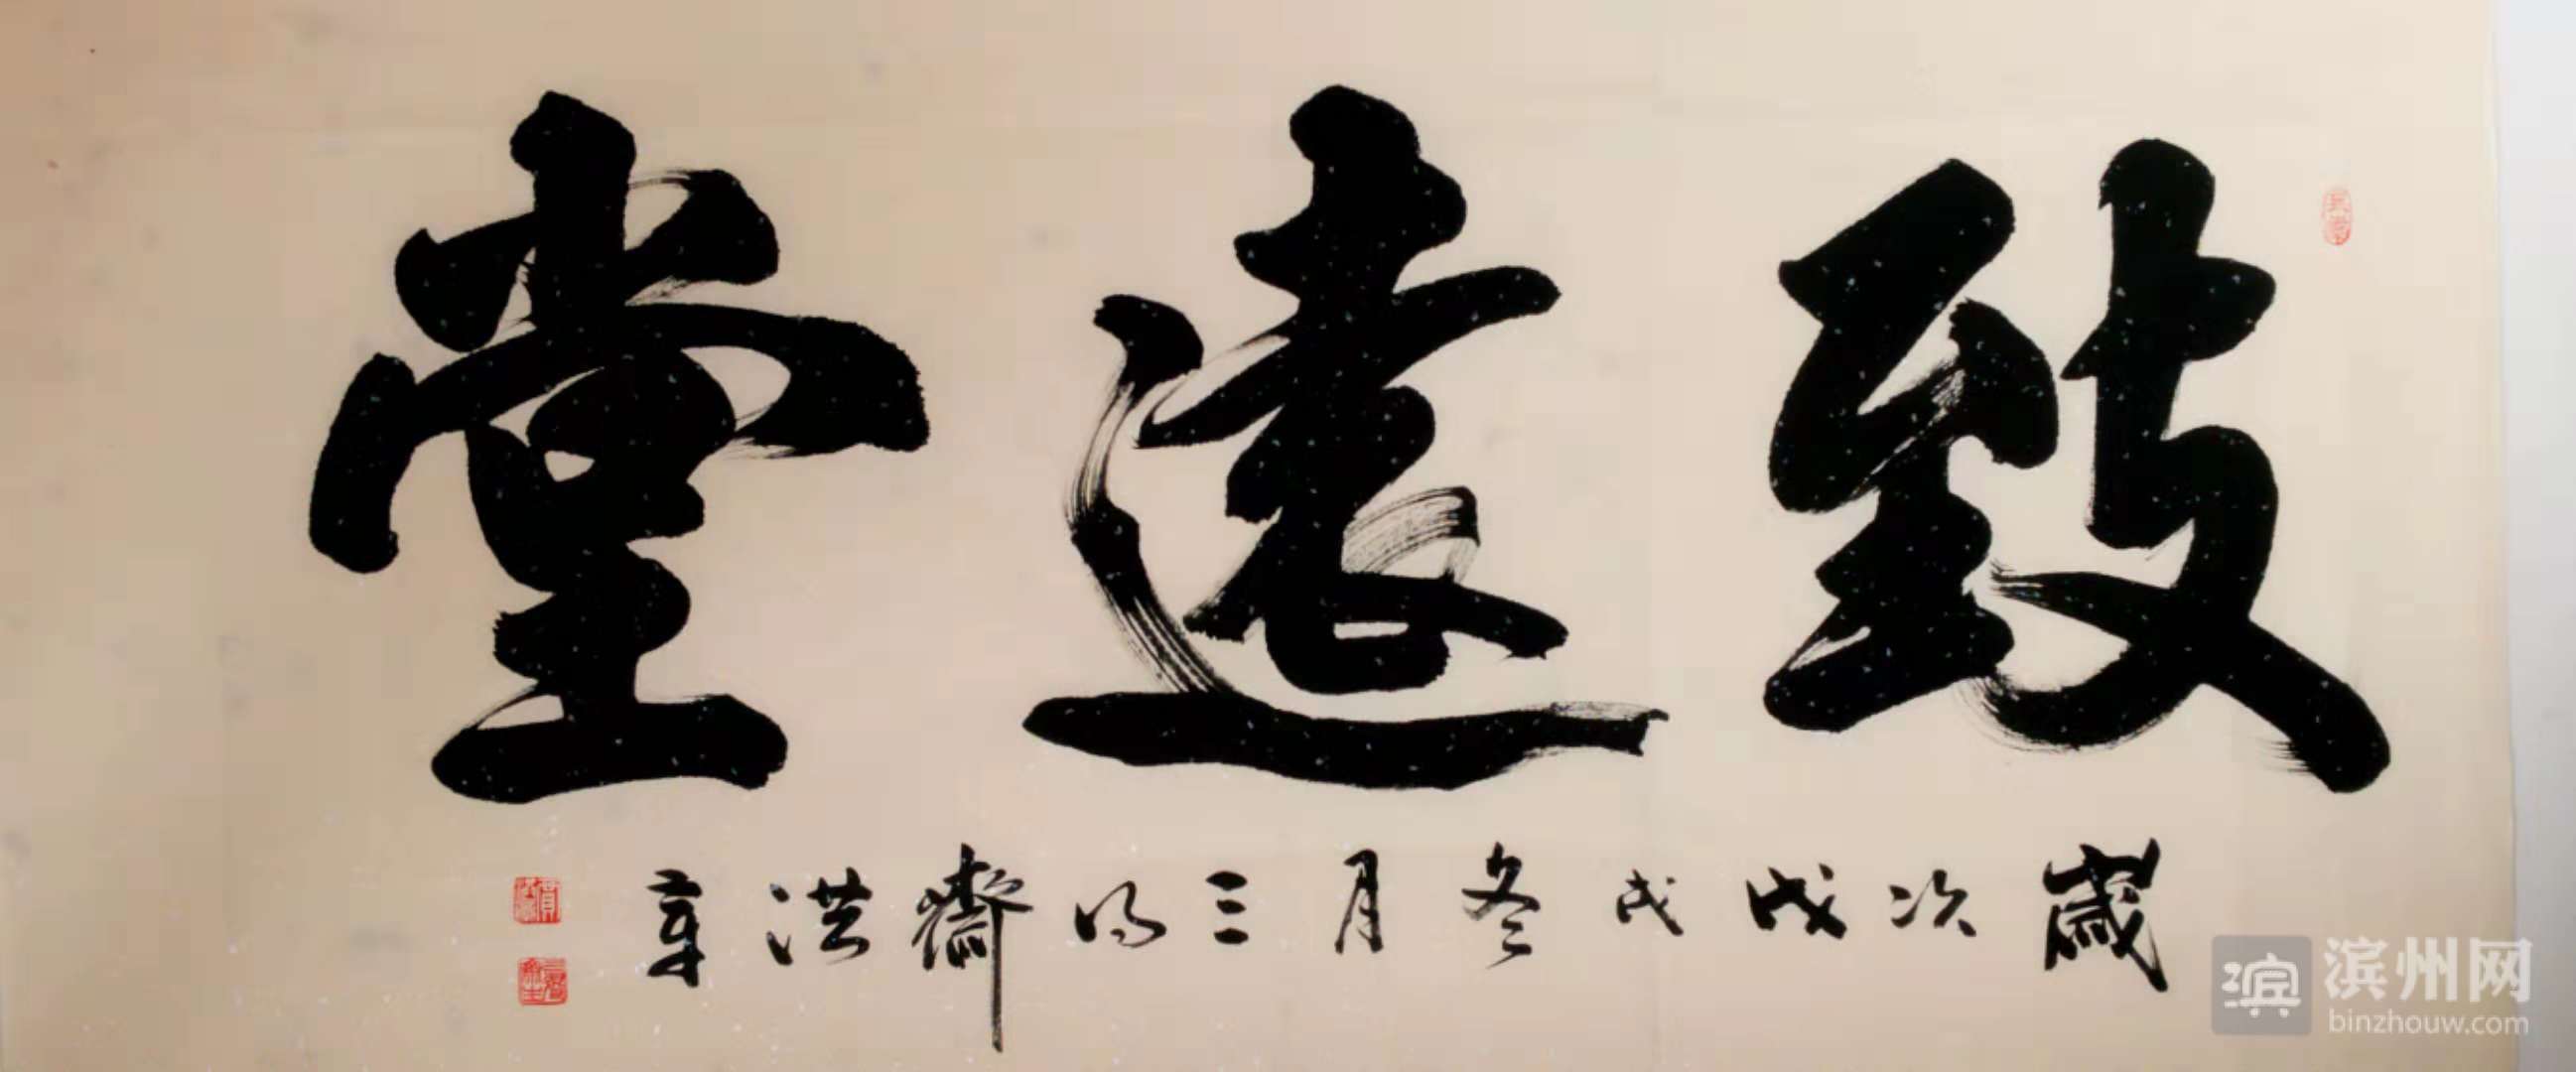 致遠堂
歲次戊戌冬月三的齋洪章
滨 滨州网
binzhouw.com